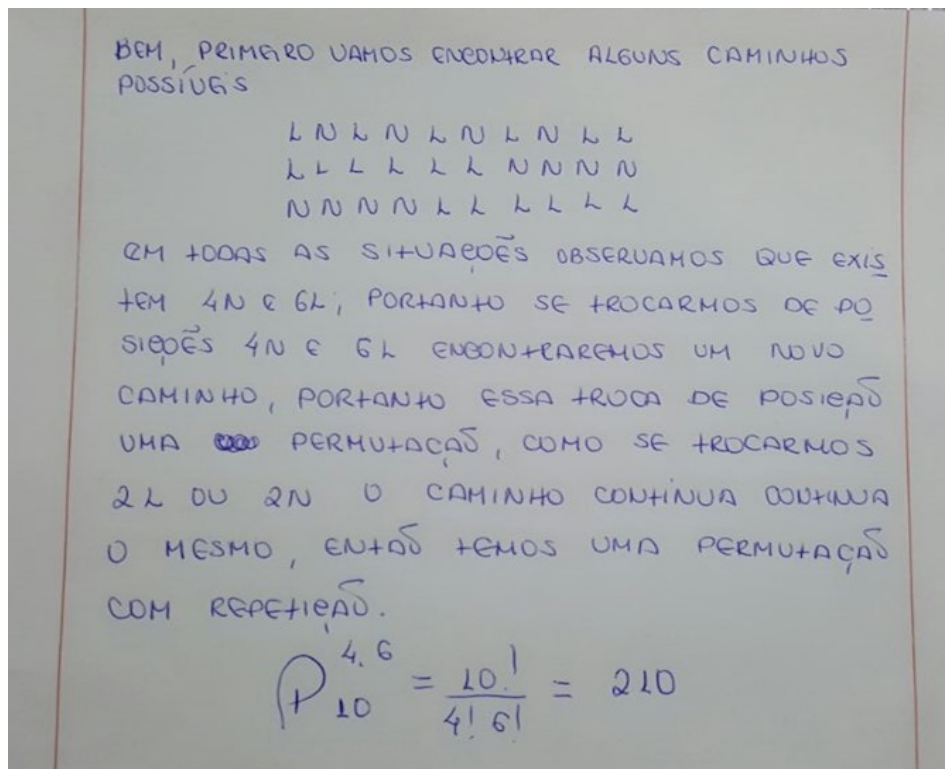 BEM, PRIMEIRO VAMOS ENCONTRAR ALGUNS CAMINHOS
POSSÍVEIS
L N L N L N L N L L
L L L L L L N N N N
N N N N L L L L L L
EM TODAS AS SITUAÇÕES OBSERVAMOS QUE EXIS
TEM 4N E 6L; PORTANTO SE TROCARMOS DE PO
SIÇÕES 4N E 6L ENCONTRAREMOS UM NOVO
CAMINHO, PORTANTO ESSA TROCA DE POSIÇÃO
UMA PERMUTAÇÃO, COMO SE TROCARMOS
2L OU 2N O CAMINHO CONTINUA CONTINUA
O MESMO, ENTÃO TEMOS UMA PERMUTAÇÃO
COM REPETIÇÃO.
P₁₀⁴·⁶ = 10!/4! 6! = 210